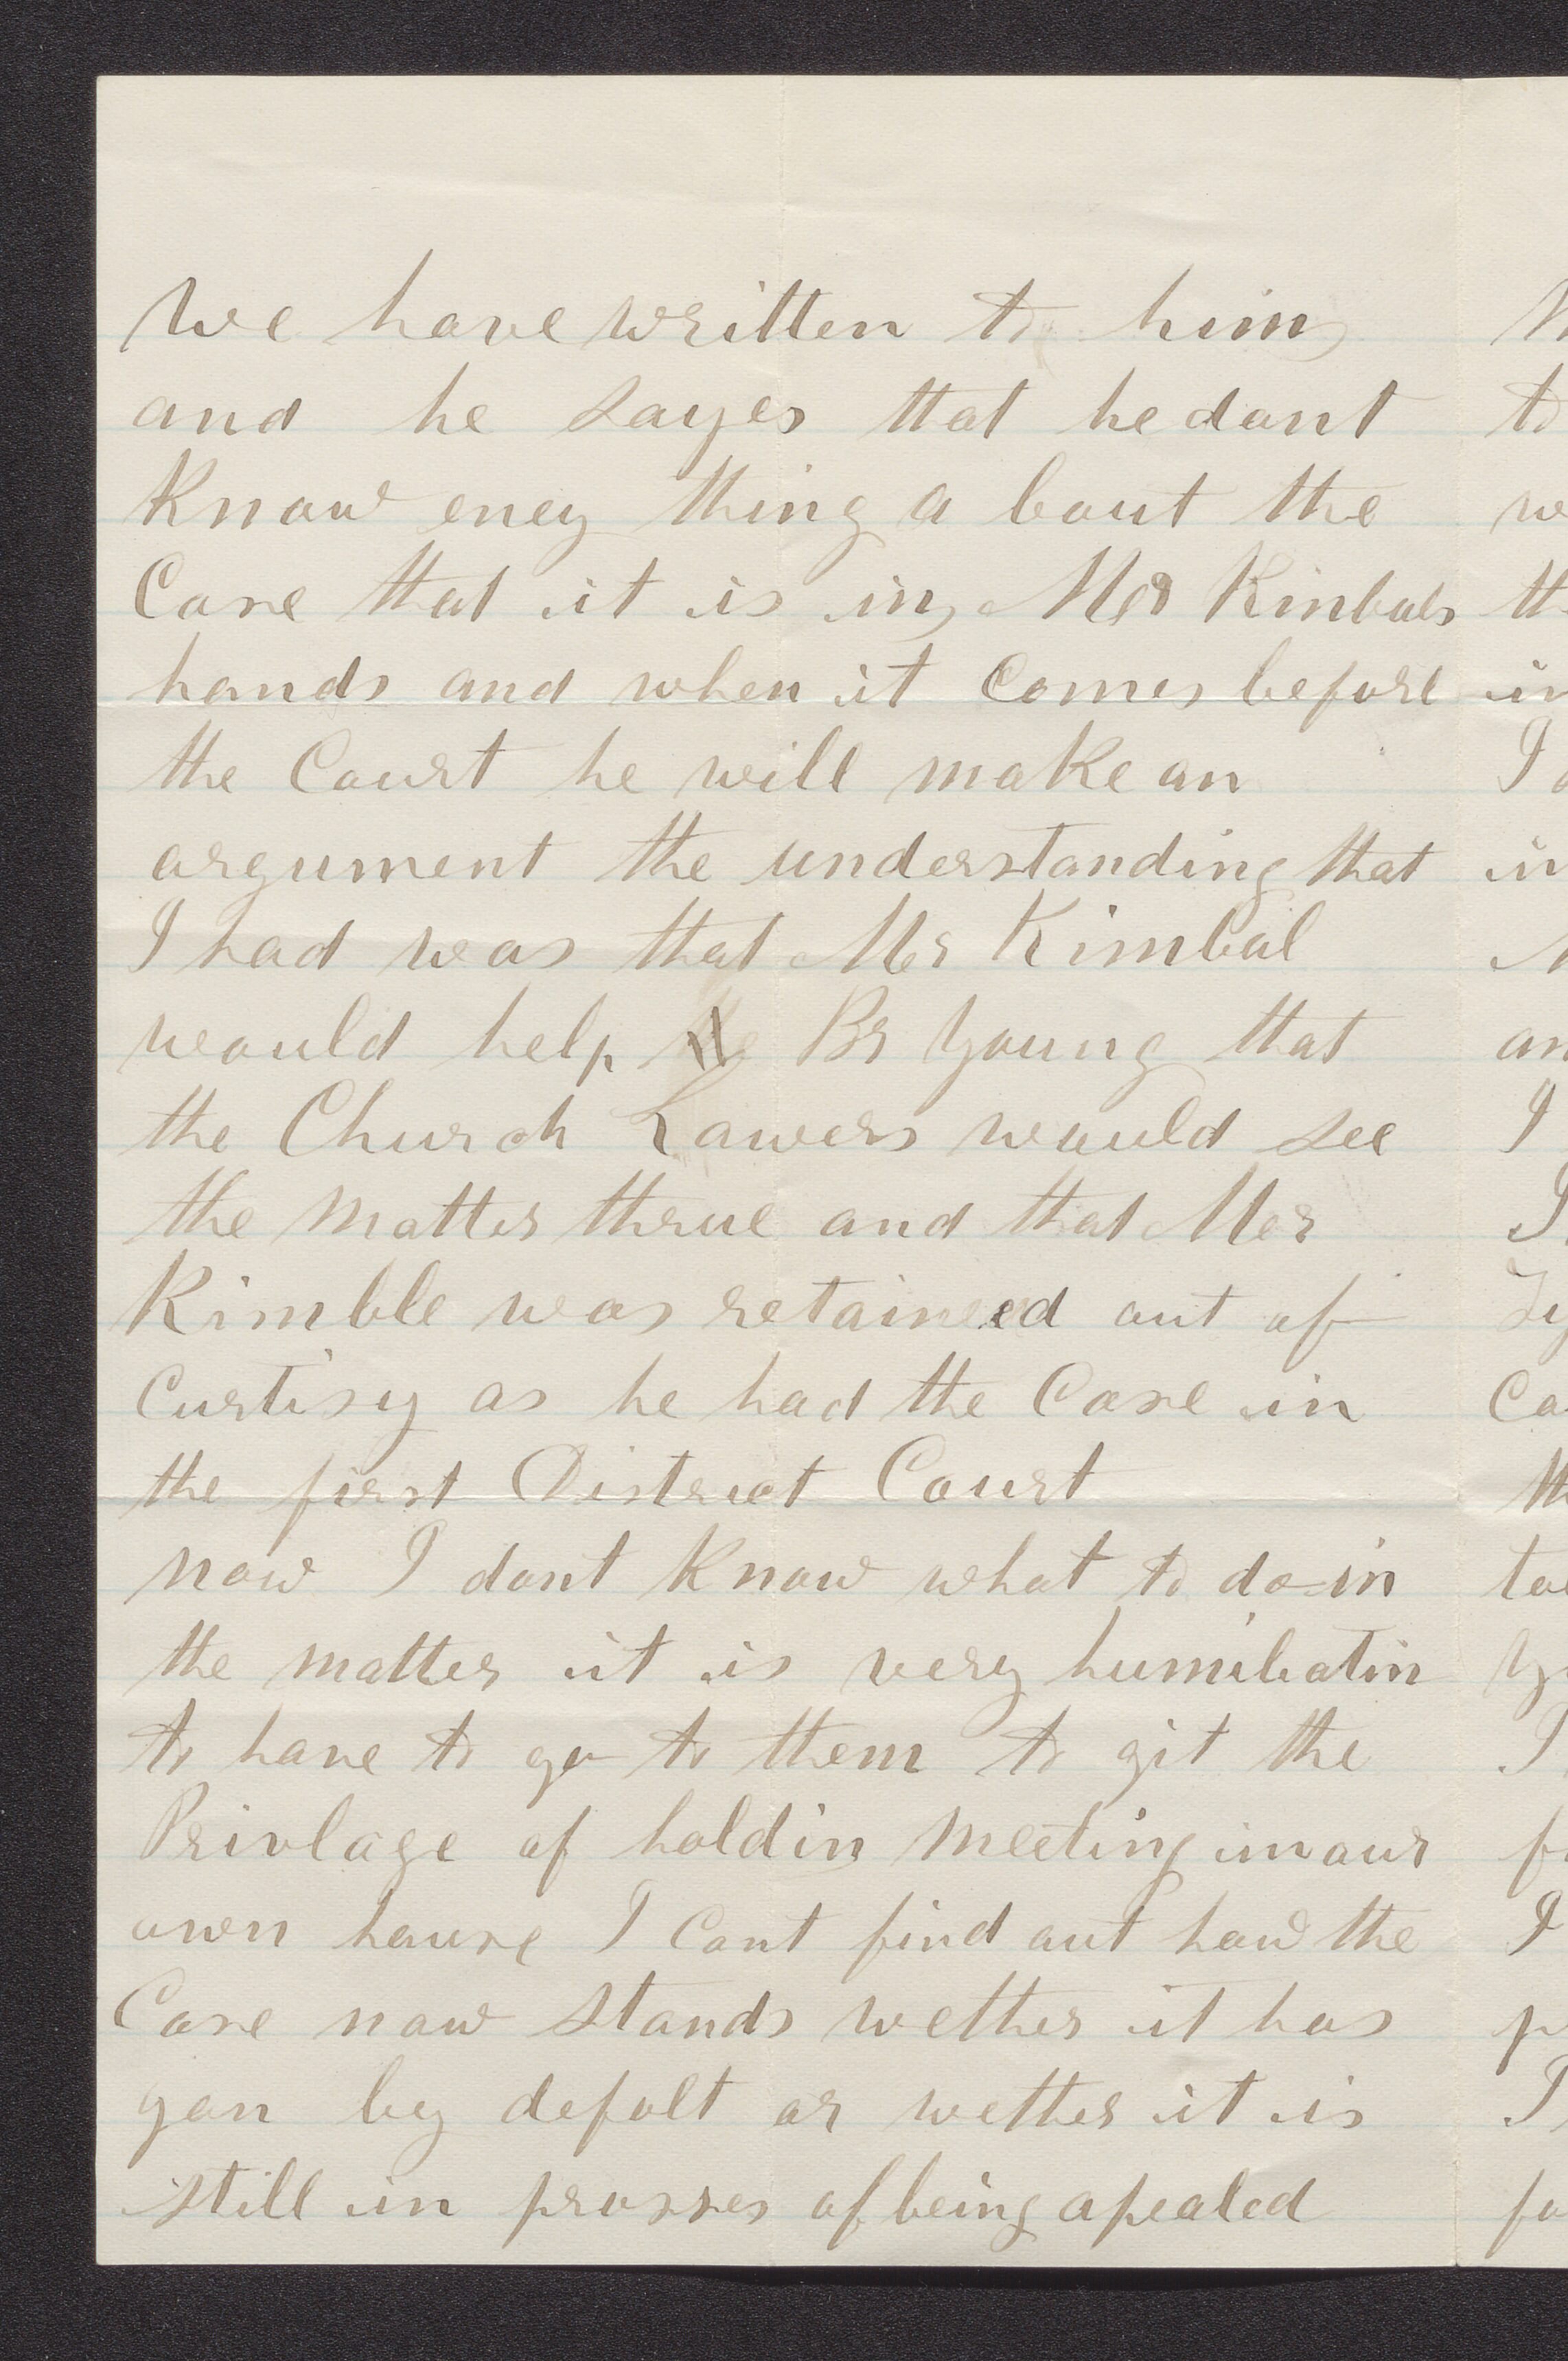 We have written to him
and he sayes that he dont
Know eney thing a bout the
Case that it is in Mr Kinbals
hands and when it Comes before
the Court he will make an
argument the understanding that
I had was that Mr Kimbal
would help Br Young that
the Church Lawers would see
the Matter thrue and that Mr
Kimble was retaineed out of
Curtisy as he had the Case in
the first District Court
now I dont Know what to do in
the matter it is very humiliatin
to have to go to them to git the
Privlage of holdin Meeting in our
own house I Cant find out how the
Case now stands wether it has
gon by defalt or wether it is
still in prosses of being apealed